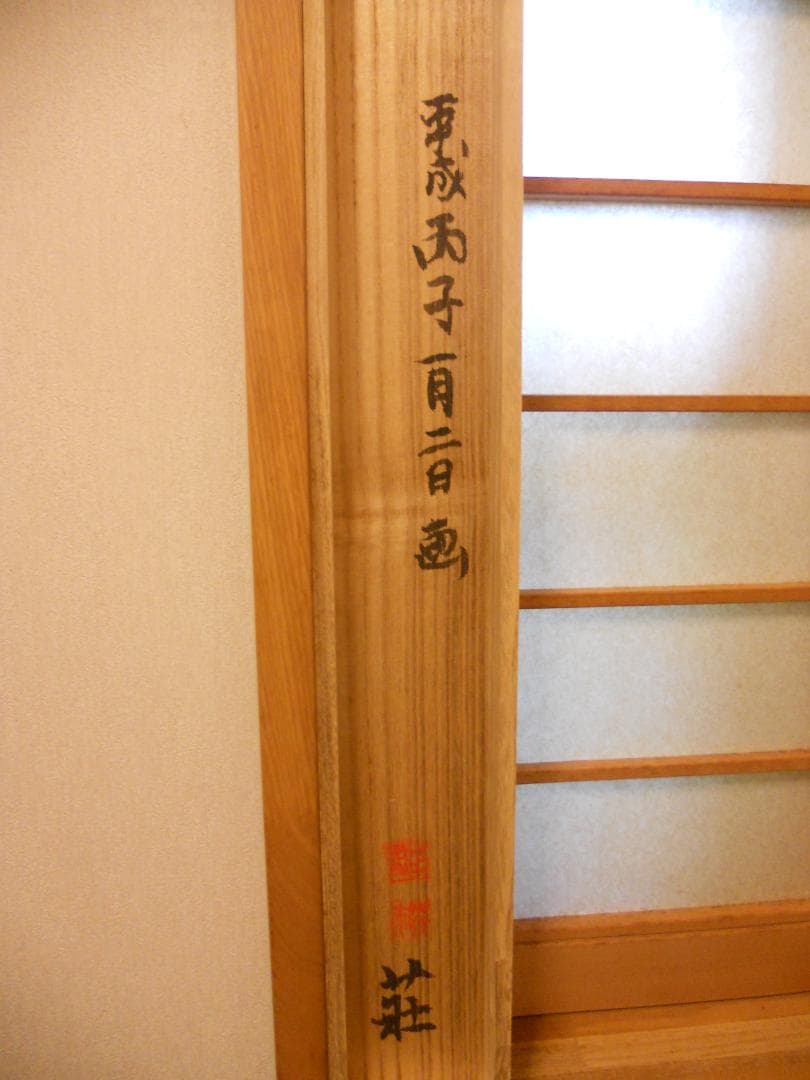 平成丙子一月二日画
荘